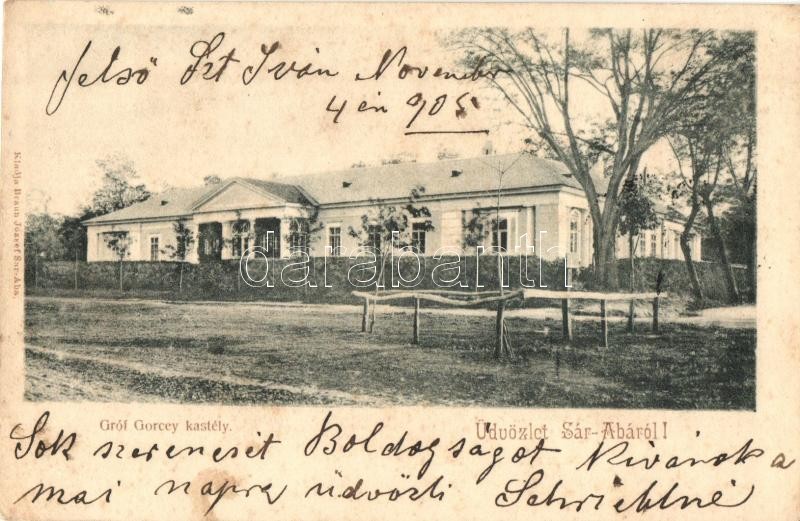 Jelső Szt Iván November
4 én 905
darabanth
Kiadja Braun József Sár-Aba.
Gróf Gorcey kastély.
Üdvözlet Sár-Abáról!
Sok szerencsét Boldogságot kivánok a
mai napra üdvözli